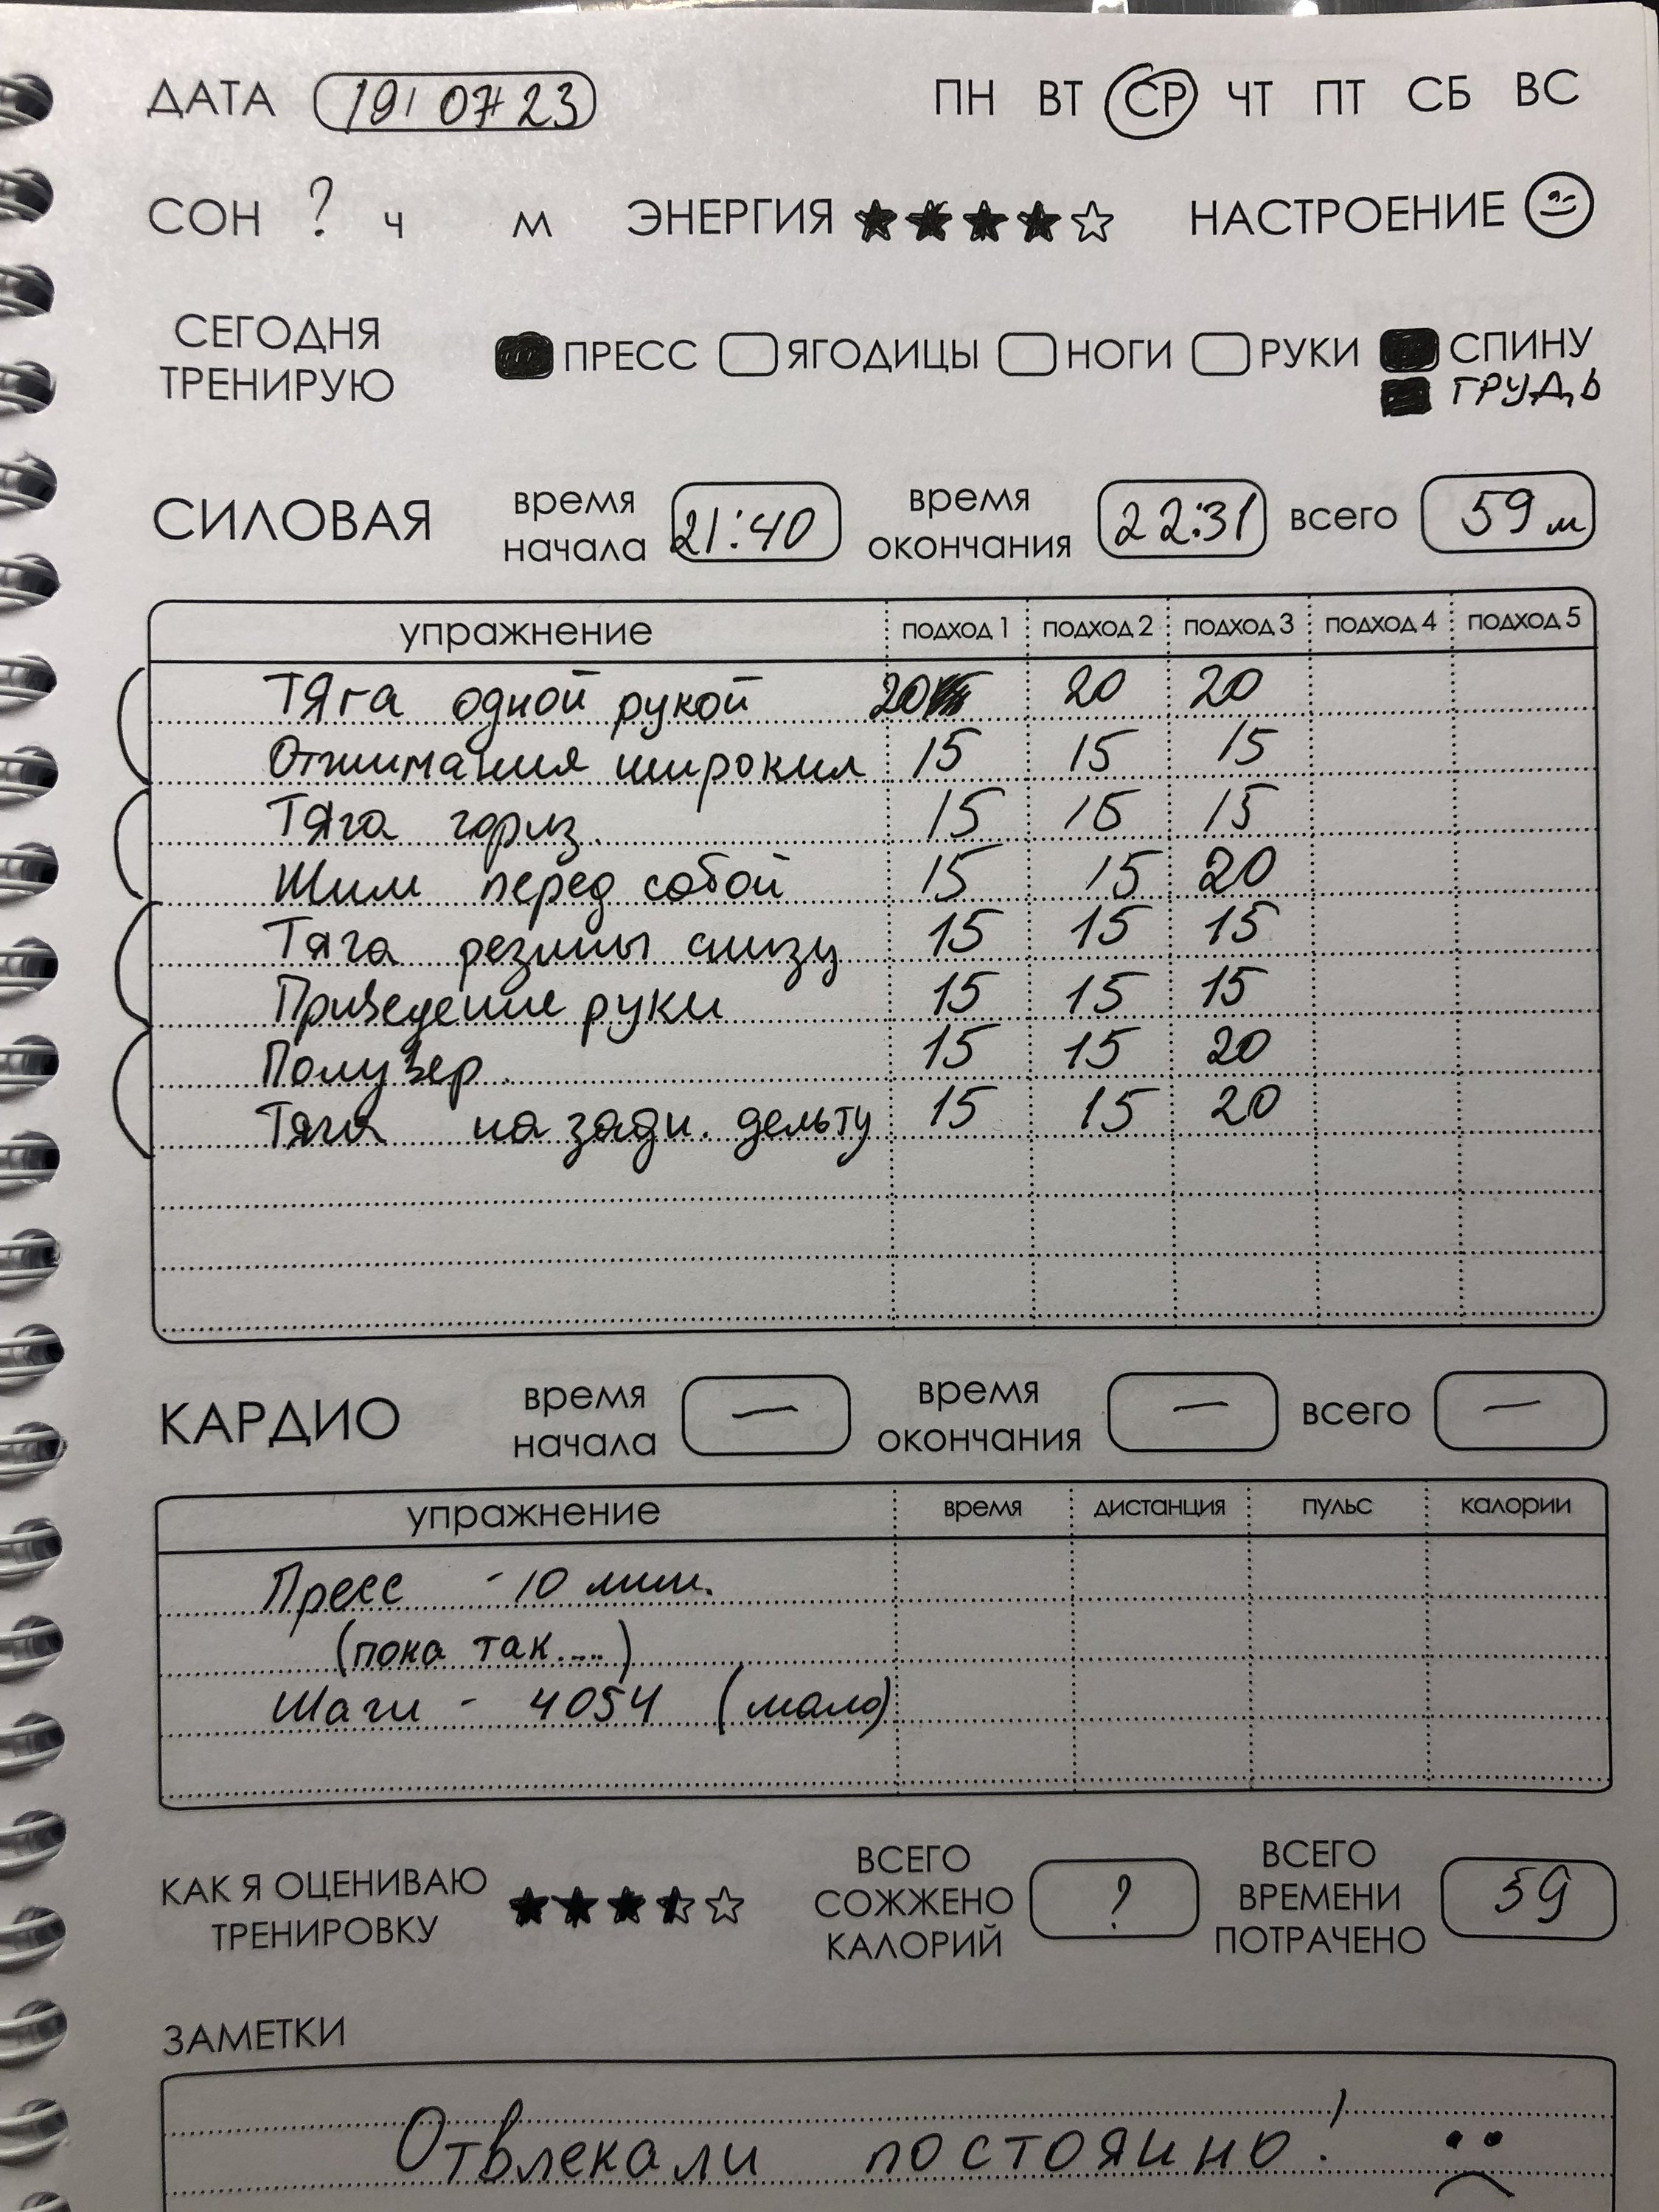 ДАТА 19/07 23 ПН ВТ СР ЧТ ПТ СБ ВС
СОН ? ч м ЭНЕРГИЯ НАСТРОЕНИЕ
СЕГОДНЯ ТРЕНИРУЮ ПРЕСС ЯГОДИЦЫ НОГИ РУКИ СПИНУ
ГРУДЬ
СИЛОВАЯ время начала 21:40 время окончания 22:31 всего 59 м
упражнение подход 1 подход 2 подход 3 подход 4 подход 5
Тяга одной рукой 20 20 20
Отжимания широкие 15 15 15
Тяга гориз. 15 15 15
Жим перед собой 15 15 20
Тяга резины снизу 15 15 15
Приведение руки 15 15 15
Полувер. 15 15 20
Тяга на задн. дельту 15 15 20
КАРДИО время начала — время окончания — всего —
упражнение время дистанция пульс калории
Пресс - 10 мин.
(пока так....)
Шаги - 4054 (мало)
КАК Я ОЦЕНИВАЮ ТРЕНИРОВКУ ВСЕГО СОЖЖЕНО КАЛОРИЙ ? ВСЕГО ВРЕМЕНИ ПОТРАЧЕНО 59
ЗАМЕТКИ
Отвлекали постоянно!